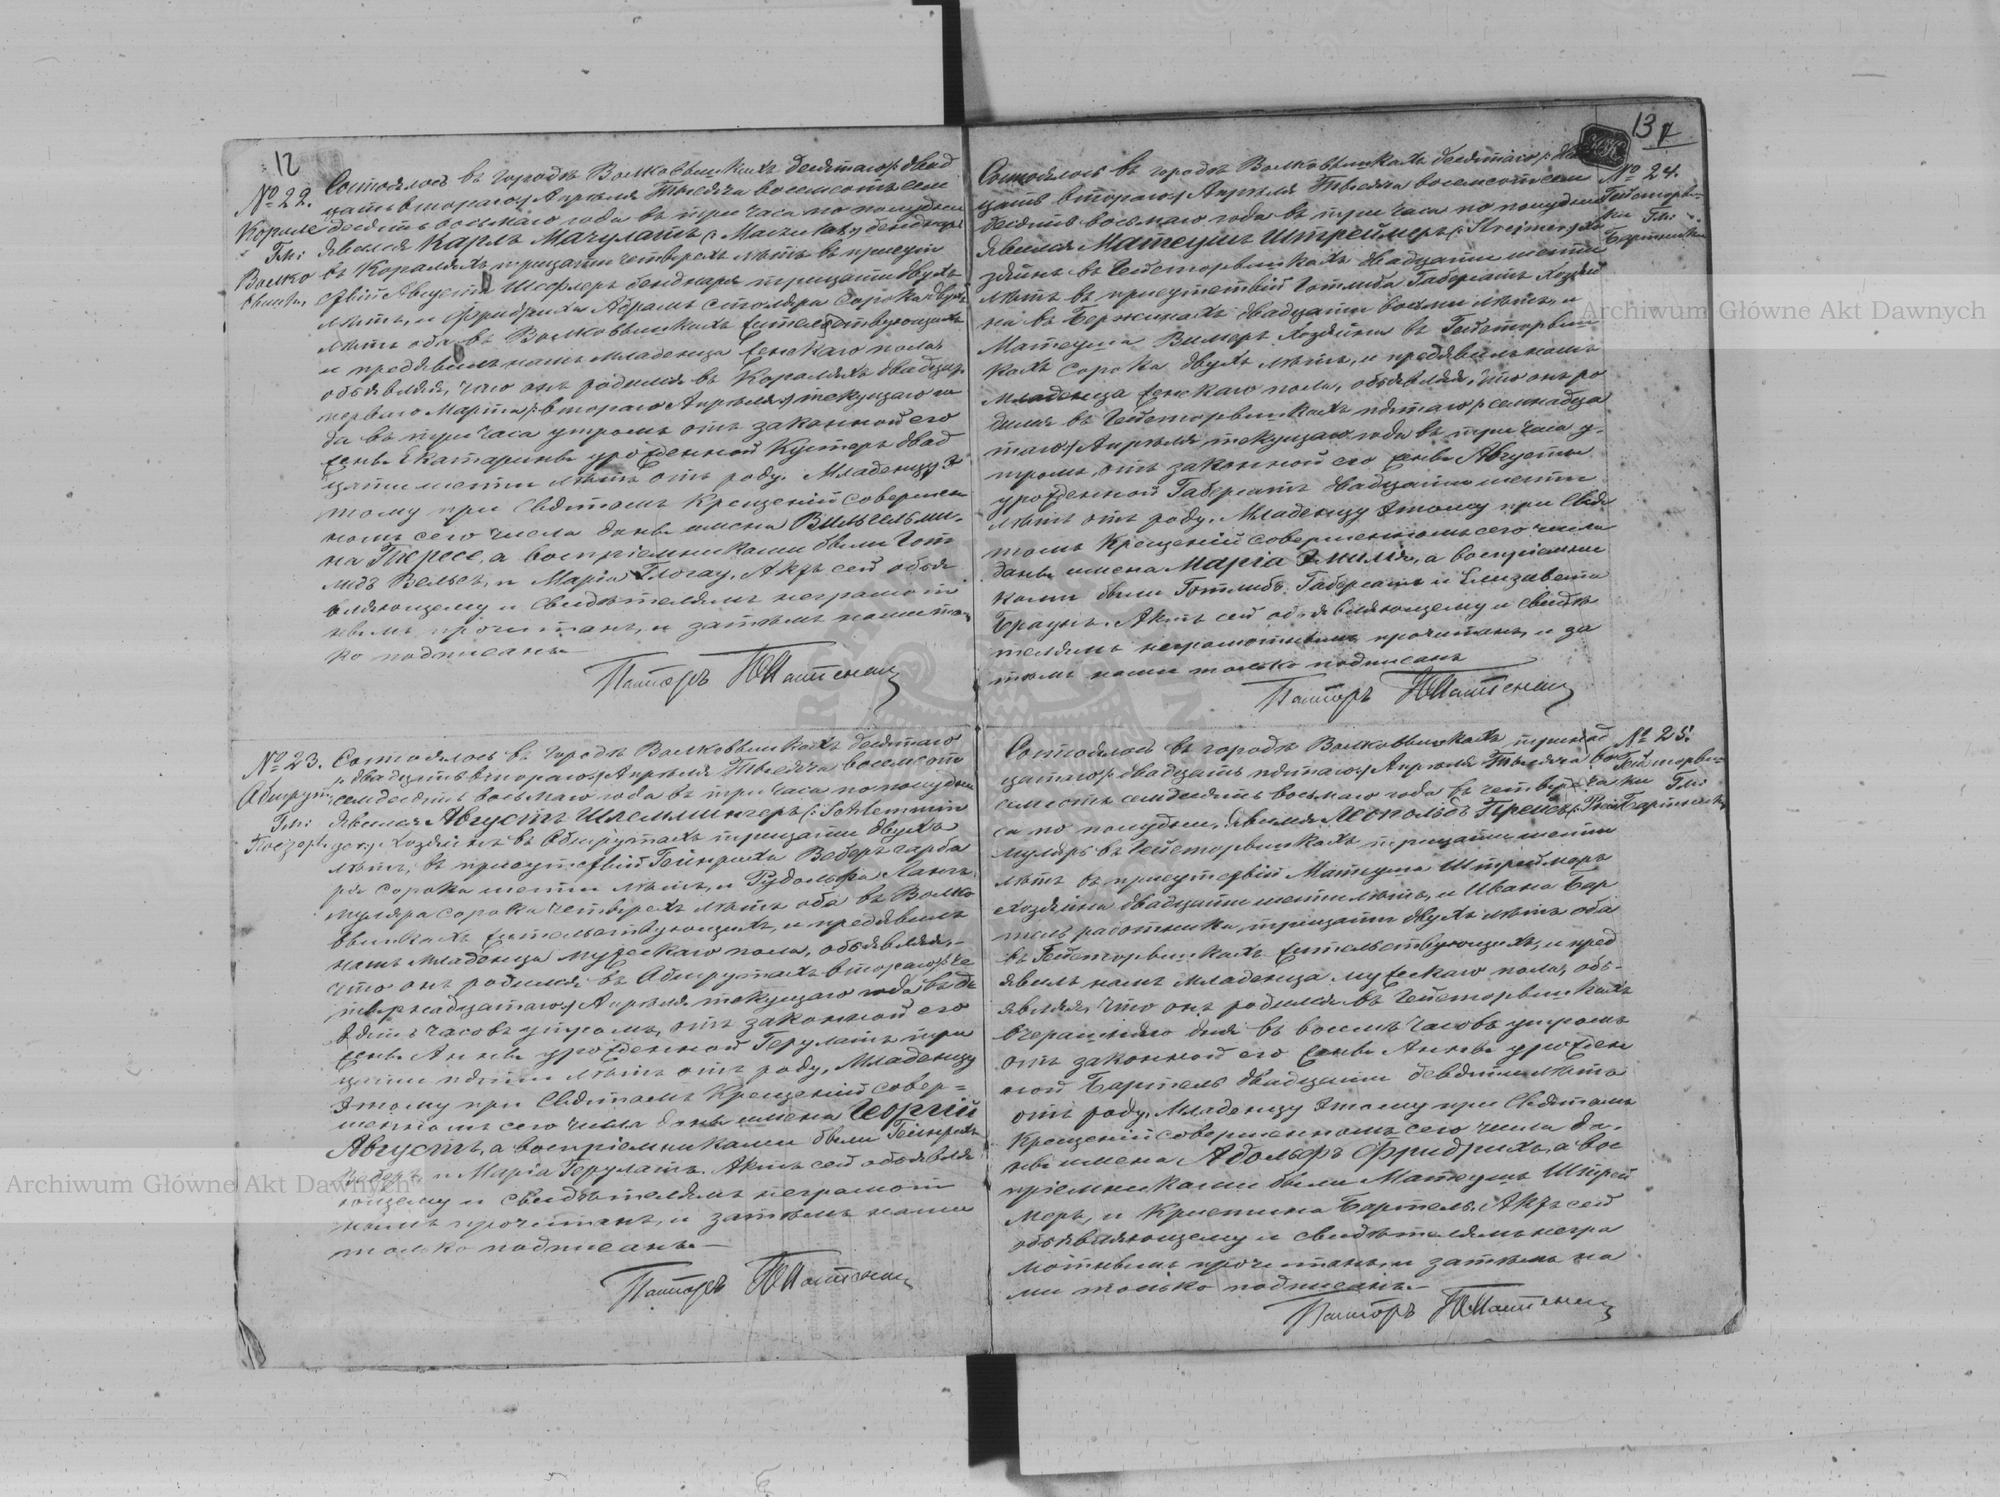 12
№ 22.
Короле
Гм:
Волко
вышки,
Состоялось въ городѣ Волковышкахъ десятаго /: двад
цать втораго :/ Апрѣля Тысяча восемсотъ сем
десятъ восьмаго года въ три часа по полудни
явился Карлъ Мачулатъ бендеръ
въ Короляхъ тридцати четверехъ лѣтъ въ присут
ствіи Августа Шефлеръ бендаря тридцати двухъ
лѣтъ, и Фридриха Абрамъ столяра сорока двухъ
лѣтъ оба въ Волковышкахъ жительствующихъ
и предявилъ намъ Младенца женскаго пола
объявляя, что онъ родился въ Короляхъ двадцать
перваго Марта /: втораго Апрѣля :/ текущаго го
да въ три часа утромъ отъ законной его
жены Екатарины урожденной Кустеръ двад
цати шести лѣтъ отъ роду. Младенцу э
тому при Святомъ Крещеніи совершен
номъ сего числа даны имена Вильгельми,
на Тересе, а воспріемниками были Гот
лидъ Вельсъ, и Марія Глогау, Актъ сей объя
вляющему и Свидѣтелямъ неграмот
нымъ прочитанъ, и затѣмъ нами толь
ко подписанъ
Пасторъ
№ 23.
Обшруты
Гм:
Состоялось въ городѣ Волковышкахъ десятаго
/: двадцать втораго :/ Апрѣля Тысяча восемсотъ
семдесятъ восьмаго года въ три часа по полудни
явился Августъ Шлеммингеръ /: Schlemmin
ger :/ Хозяинъ въ Обшрутахъ тридцати двухъ
лѣтъ, въ присутствіи Гейнриха Веберъ гарба
ря сорока шести лѣтъ, и Рудольфа Лангъ
муляра сорока четверехъ лѣтъ оба въ Волко
вышкахъ жительствующихъ, и предявилъ
намъ Младенца мужескаго пола, объявляя,
что онъ родился въ Обшрутахъ втораго /: че
тырнадцатаго :/ Апрѣля текущаго года въ де
вять часовъ утромъ, отъ законной его
жены Анны урожденной Герулатъ три
цати пяти лѣтъ отъ роду, Младенцу
этому при Святомъ Крещеніи совер=
шенномъ сего числа даны имена Георгій
Августъ, а воспріемниками были Гейнрихъ
Веберъ и Марія Герулатъ. Актъ сей объявля
ющему и свидѣтелямъ неграмот
нымъ прочитанъ, и затѣмъ нами
только подписанъ.
Пасторъ
13
№ 24.
Гейсторви=
ки Гм:
Состоялось въ городѣ Волковышкахъ десятаго /: два
цать втораго :/ Апрѣля Тысяча восемсотъ сем
десятъ восьмаго года въ три часа по полудни
явился Матеушъ Штреймеръ /: Streimer :/ хо
зяинъ въ Гейсторвишкахъ двадцати шести
лѣтъ въ присутствіи Готлиба Габерсатъ хозяи
на въ двадцати восьми лѣтъ, и
Матеуша Вимеръ хозяина въ Гейсторвиш
кахъ сорока двухъ лѣтъ, и предявилъ намъ
Младенца женскаго пола, объявляя, что онъ ро
дился въ Гейсторвишкахъ пятаго /: семнадца
таго :/ Апрѣля текущаго года въ три часа у,
тромъ, отъ законной его жены Августы
урожденной Габерсатъ двадцати шести
лѣтъ отъ роду. Младенцу этому при Свя
томъ Крещеніи совершенномъ сего числа
даны имена Марія Эмилія, а воспріемни
ками были Готлибъ Габерсатъ и Елизавета
Браунъ. Актъ сей объявляющему и Свидѣ
телямъ неграмотнымъ прочитанъ, и за
тѣмъ нами только подписанъ
Пасторъ
№ 25.
Гейсторви=
шки Гм:
Состоялось въ городѣ Волковышкахъ тринад
цатаго /: двадцать пятаго :/ Апрѣля Тысяча вос
емсотъ семдесятъ восьмаго года въ четыре ча
са по полудни, явился Леопольдъ Прейсъ
муляръ въ Гейсторвишкахъ тридцати шести
лѣтъ въ присутствіи Матеуша Штреймеръ
хозяина двадцати шести лѣтъ, и Ивана Бар
тель работника, тридцати двухъ лѣтъ оба
въ Гейсторвишкахъ жительствующихъ, и пред
явилъ намъ Младенца мужескаго пола, объ=
являя, что онъ родился въ Гейсторвишкахъ
вчерашняго дня въ восемъ часовъ утромъ
отъ законной его жены Анны урожден
ной Бартель двадцати девяти лѣтъ
отъ роду, Младенцу этому при Святомъ
Крещеніи совершенномъ сего числа да,
ны имена Адольфъ Фридрихъ, а вос
пріемниками были Матеушъ Штрей
меръ, и Кристина Бартель. Актъ сей
объявляющему и свидѣтелямъ негра
мотнымъ прочитанъ, и затѣмъ на
ми только подписанъ.
Пасторъ
Archiwum Główne Akt Dawnych
Archiwum Główne Akt Dawnych